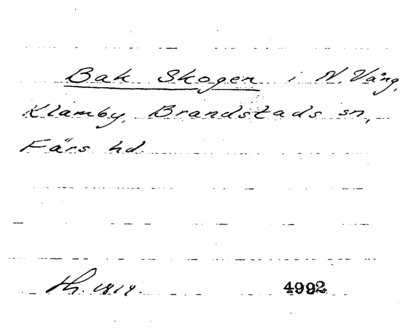 Bak Skogen i N. Vång,
Klamby, Brandstads sn,
Färs hd.
Th. 1819. 4992